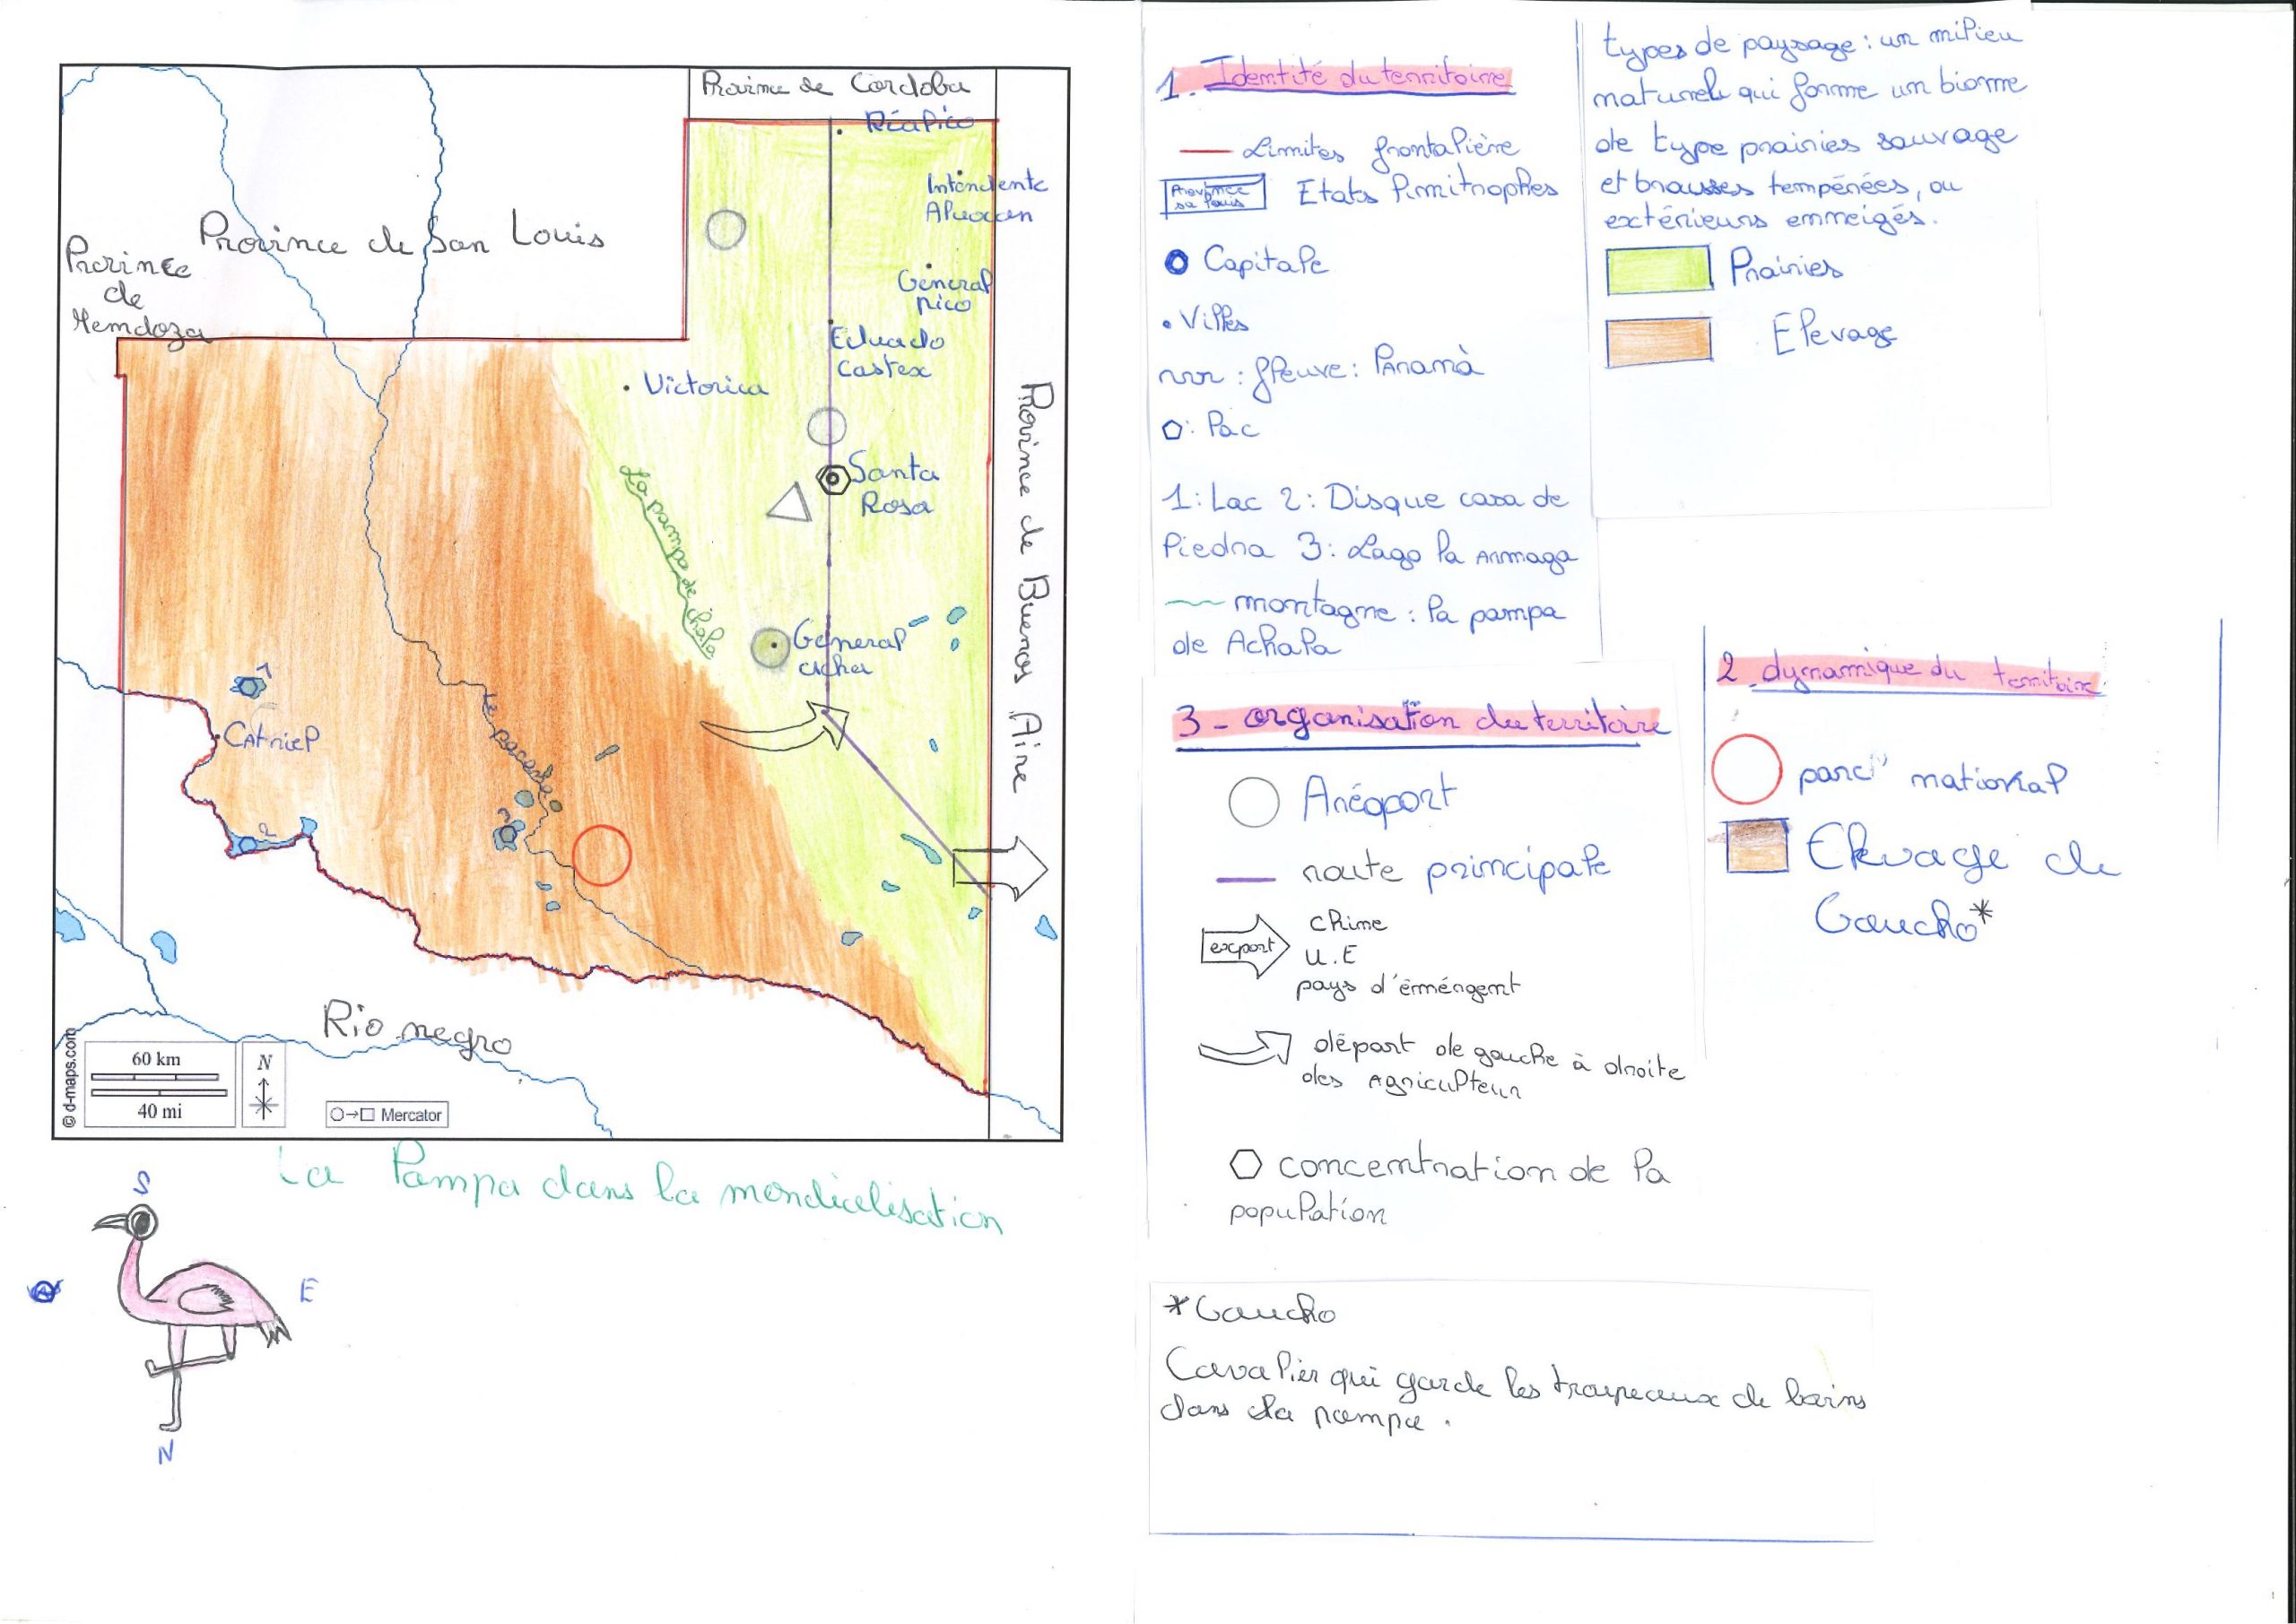 Province de Cordoba
Réalico
Intendente
Alvocen
Province de San Louis
Province
de
Mendoza
General
pico
Eduado
Castex
Victorica
Santa
Rosa
La pampa de chala
Province de Buenos Aire
General
acha
1
Catriel
2
3
Rio negro
© d-maps.com
60 km
40 mi
N
Mercator
La Pampa dans la mondialisation
S
E
N
1. Identité du territoire
Limites frontalière
Province
sa louis
Etats limitrophes
Capitale
Villes
: fleuve : Parana
: lac
1: Lac 2: Disque casa de
Piedra 3: Lago la Armaga
montagne : la pampa
de Achala
types de paysage : un milieu
naturel qui forme un biome
de type prairies sauvage
et brousses tempérées, ou
extérieurs enneigés.
Prairies
Elevage
2 dynamique du territoire
parc national
Elevage de
Gaucho*
3 - organisation du territoire
Aréoport
route principale
export
Chine
U.E
pays d'émérgent
départ de gauche à droite
des Agriculteur
concentration de la
population
*Gaucho
Cavalier qui garde les troupeaux de bovins
dans la pampa.